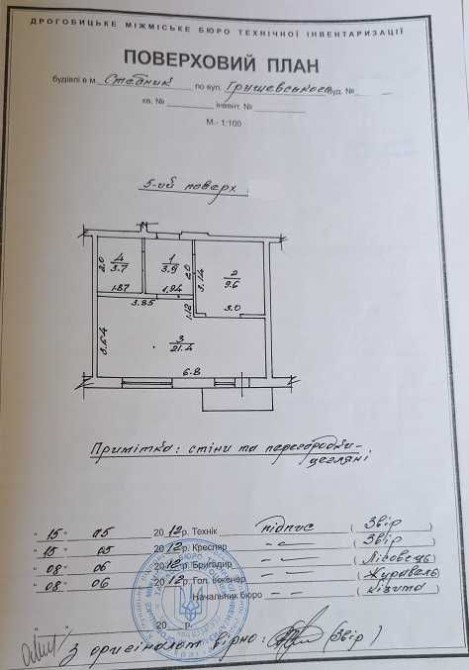 ДРОГОБИЦЬКЕ МІЖМІСЬКЕ БЮРО ТЕХНІЧНОЇ ІНВЕНТАРИЗАЦІЇ
ПОВЕРХОВИЙ ПЛАН
будівлі в м. Стебник по вул. Грушевського буд. №
кв. № інвент. №
М.- 1:100
5-ий поверх
4 1 2
3.7 3.9 9.6
2.0 2.0 3.14
1.87 1.94
3.85 1.12 3.0
3
21.4
3.64
6.8
Примітка: стіни та перегородки-
цегляні
"15" 05 2012р. Технік підпис (Звір)
"15" 05 2012р. Кресляр -"- (Звір)
"08" 06 2012р. Бригадир -"- (Лісовець)
"08" 06 2012р. Гол. інженер -"- (Журавель)
Начальник бюро -"-
" " 20 р.
З оригіналом вірно: (Звір)